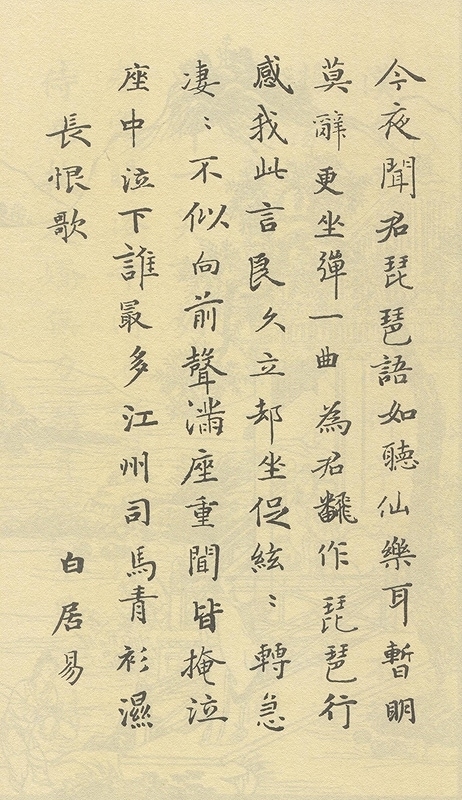 今夜聞君琵琶語如聽仙樂耳暫明
莫辭更坐彈一曲為君飜作琵琶行
感我此言良久立却坐促絃〻轉急
凄〻不似向前聲滿座重聞皆掩泣
座中泣下誰最多江州司馬青衫濕
長恨歌 白居易